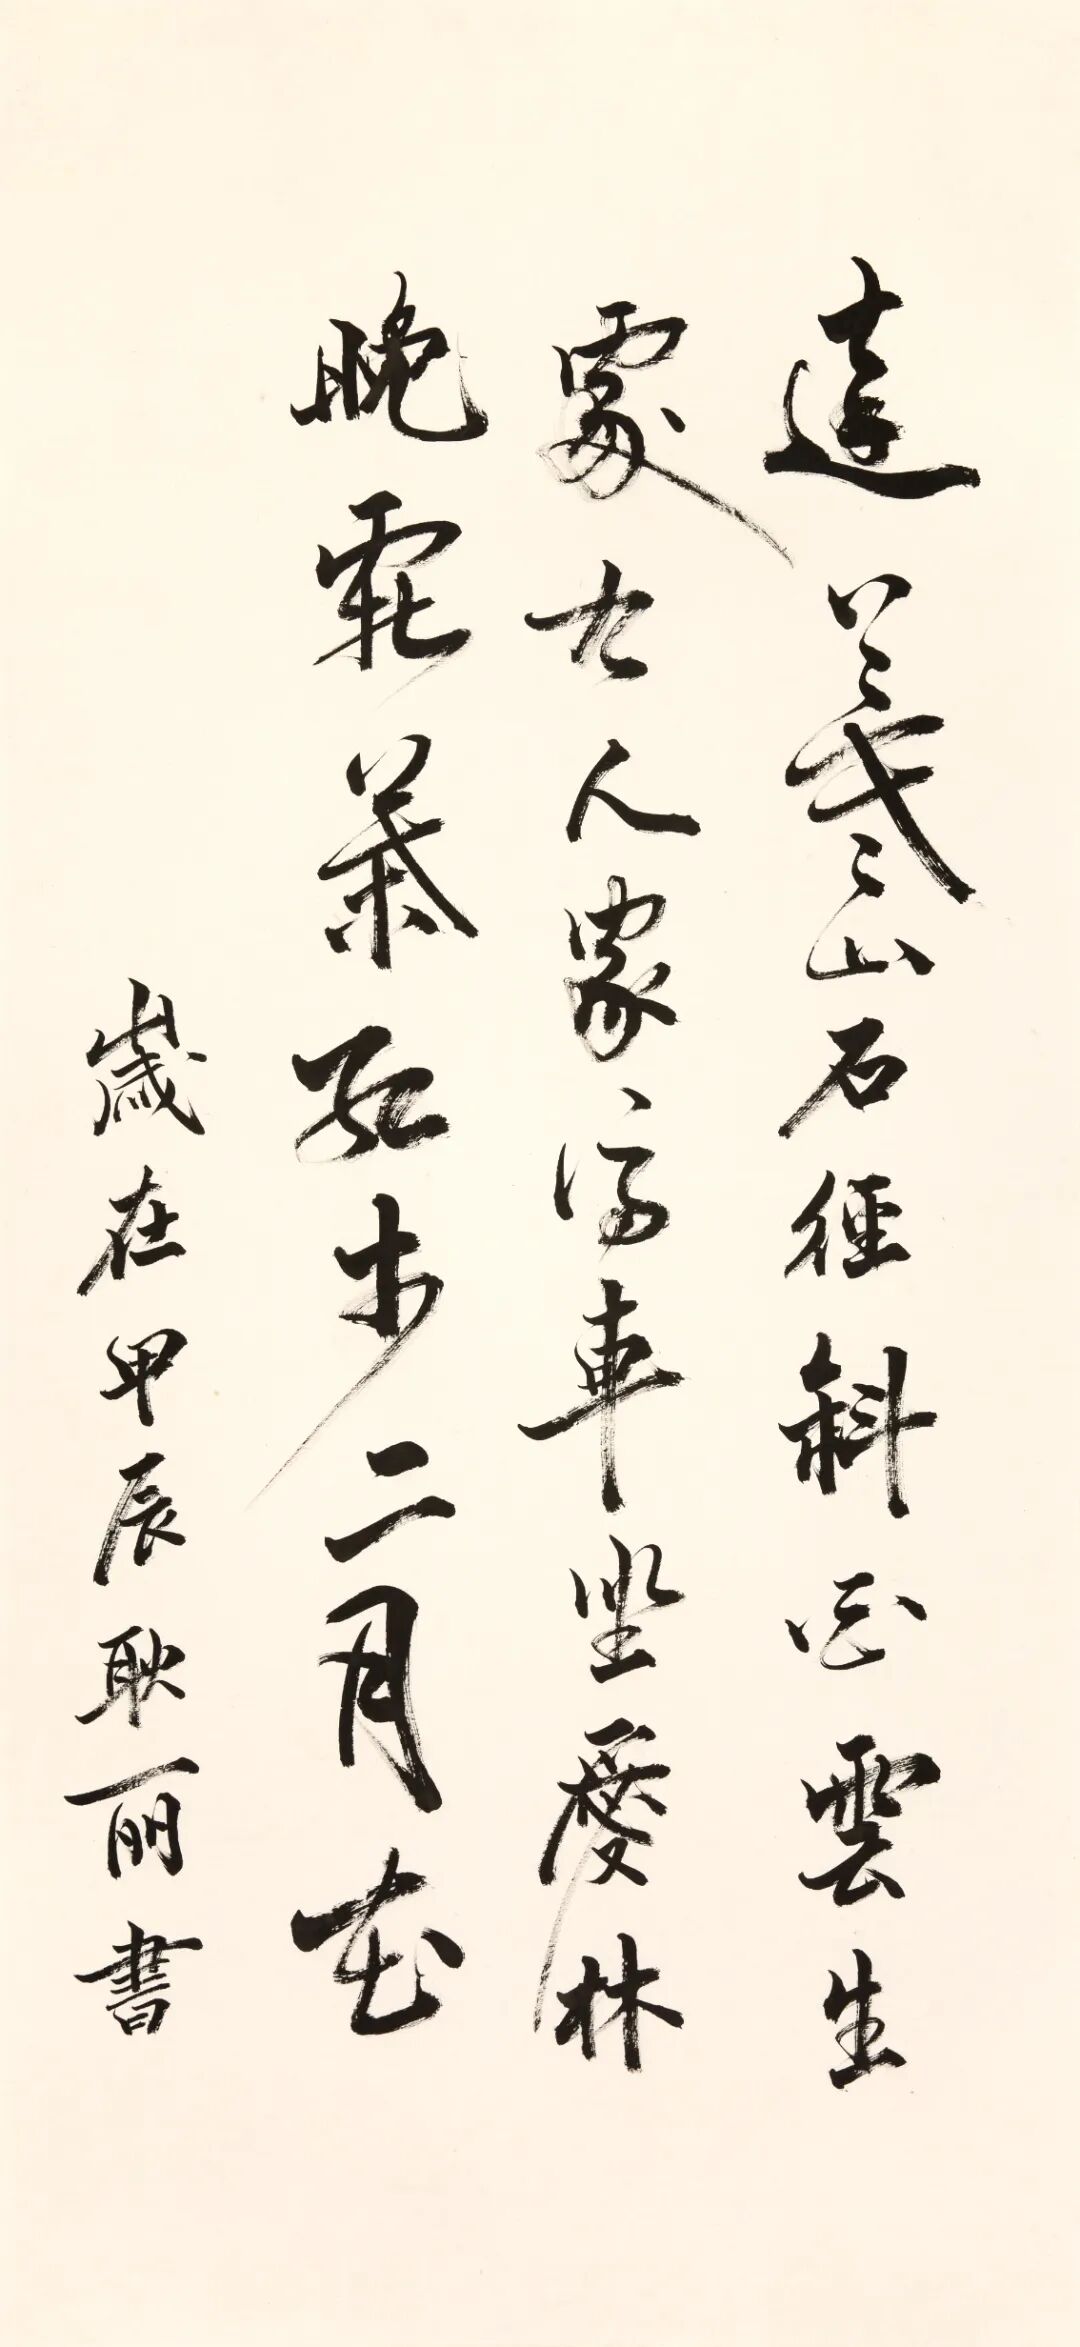 遠寒山石徑斜白雲生
處有人家停車坐愛林
晚霜葉紅於二月花
歲在甲辰耿丽書